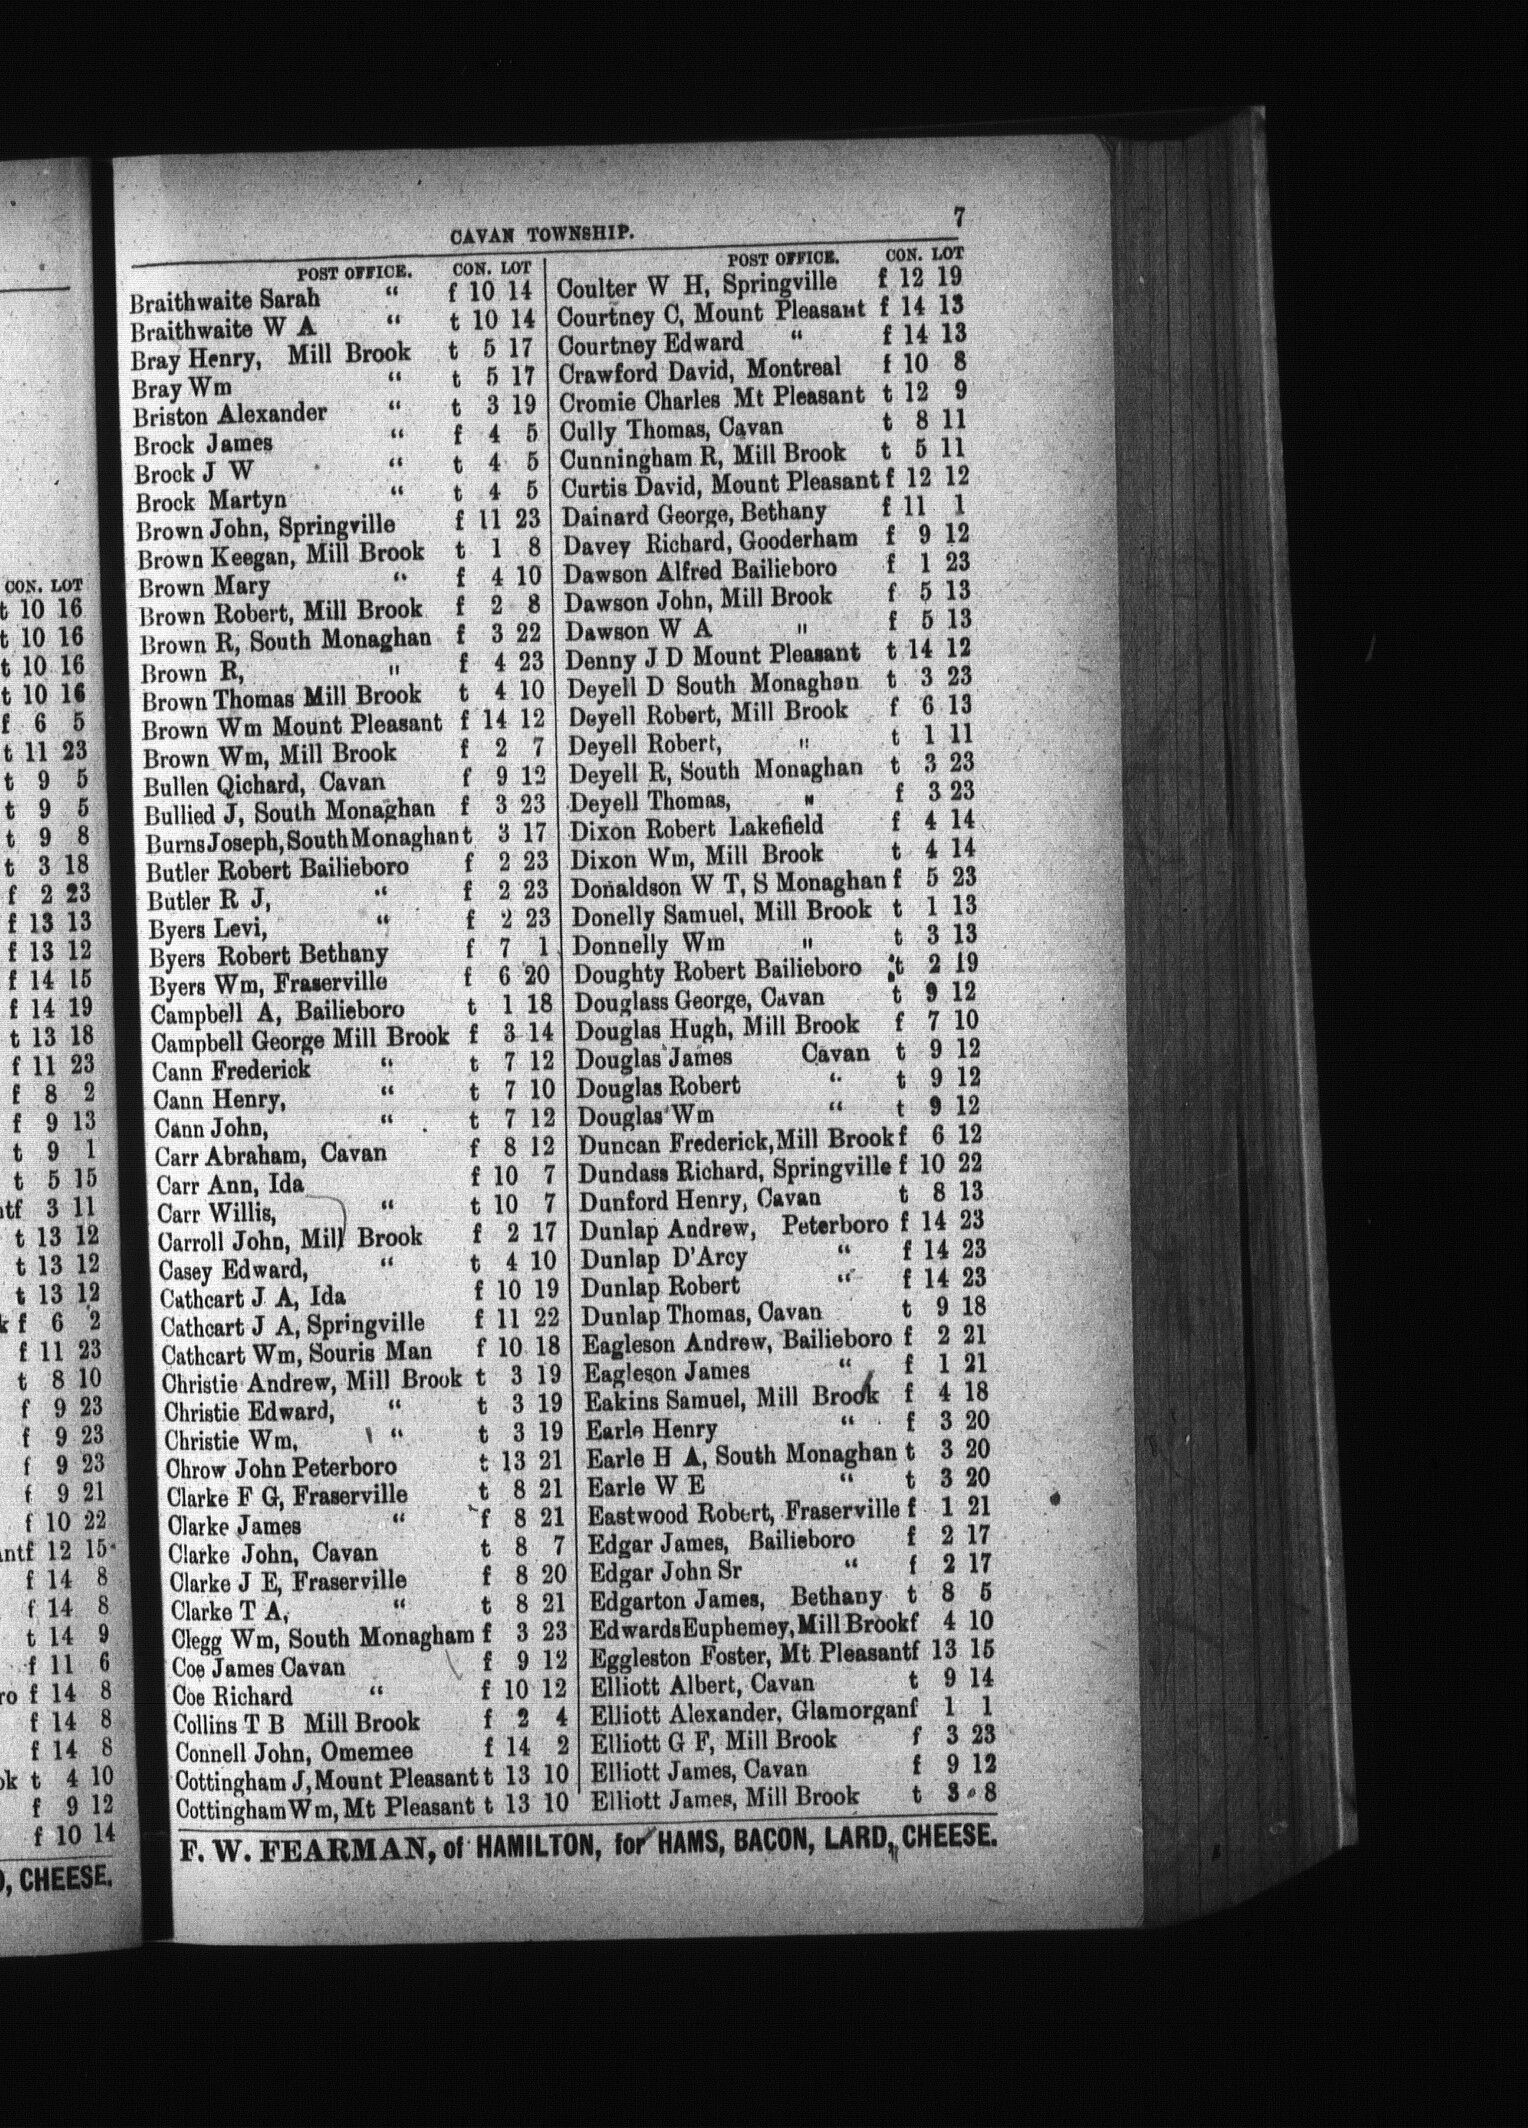 CON. LOT
t 10 16
t 10 16
t 10 16
t 10 16
f 6 5
t 11 23
t 9 5
t 9 5
t 9 8
t 3 18
f 2 23
f 13 13
f 13 12
f 14 15
f 14 19
t 13 18
f 11 23
f 8 2
f 9 13
t 9 1
t 5 15
ntf 3 11
t 13 12
t 13 12
t 13 12
k f 6 2
f 11 23
t 8 10
f 9 23
f 9 23
f 9 23
f 9 21
f 10 22
ntf 12 15
f 14 8
f 14 8
t 14 9
f 11 6
ro f 14 8
f 14 8
f 14 8
ok t 4 10
f 9 12
f 10 14
, CHEESE.
CAVAN TOWNSHIP.
7
POST OFFICE. CON. LOT
Braithwaite Sarah “ f 10 14
Braithwaite W A “ t 10 14
Bray Henry, Mill Brook t 5 17
Bray Wm “ t 5 17
Briston Alexander “ t 3 19
Brock James “ f 4 5
Brock J W “ t 4 5
Brock Martyn “ t 4 5
Brown John, Springville f 11 23
Brown Keegan, Mill Brook t 1 8
Brown Mary “ f 4 10
Brown Robert, Mill Brook f 2 8
Brown R, South Monaghan f 3 22
Brown R, " f 4 23
Brown Thomas Mill Brook t 4 10
Brown Wm Mount Pleasant f 14 12
Brown Wm, Mill Brook f 2 7
Bullen Qichard, Cavan f 9 12
Bullied J, South Monaghan f 3 23
Burns Joseph, South Monaghan t 3 17
Butler Robert Bailieboro f 2 23
Butler R J, “ f 2 23
Byers Levi, “ f 2 23
Byers Robert Bethany f 7 1
Byers Wm, Fraserville f 6 20
Campbell A, Bailieboro t 1 18
Campbell George Mill Brook f 3 14
Cann Frederick “ t 7 12
Cann Henry, “ t 7 10
Cann John, “ t 7 12
Carr Abraham, Cavan f 8 12
Carr Ann, Ida f 10 7
Carr Willis, “ t 10 7
Carroll John, Mill Brook f 2 17
Casey Edward, “ t 4 10
Cathcart J A, Ida f 10 19
Cathcart J A, Springville f 11 22
Cathcart Wm, Souris Man f 10 18
Christie Andrew, Mill Brook t 3 19
Christie Edward, “ t 3 19
Christie Wm, “ t 3 19
Chrow John Peterboro t 13 21
Clarke F G, Fraserville t 8 21
Clarke James “ f 8 21
Clarke John, Cavan t 8 7
Clarke J E, Fraserville f 8 20
Clarke T A, “ t 8 21
Clegg Wm, South Monagham f 3 23
Coe James Cavan f 9 12
Coe Richard “ f 10 12
Collins T B Mill Brook f 2 4
Connell John, Omemee f 14 2
Cottingham J, Mount Pleasant t 13 10
Cottingham Wm, Mt Pleasant t 13 10
POST OFFICE. CON. LOT
Coulter W H, Springville f 12 19
Courtney C, Mount Pleasant f 14 13
Courtney Edward “ f 14 13
Crawford David, Montreal f 10 8
Cromie Charles Mt Pleasant t 12 9
Cully Thomas, Cavan t 8 11
Cunningham R, Mill Brook t 5 11
Curtis David, Mount Pleasant f 12 12
Dainard George, Bethany f 11 1
Davey Richard, Gooderham f 9 12
Dawson Alfred Bailieboro f 1 23
Dawson John, Mill Brook f 5 13
Dawson W A " f 5 13
Denny J D Mount Pleasant t 14 12
Deyell D South Monaghan t 3 23
Deyell Robert, Mill Brook f 6 13
Deyell Robert, " t 1 11
Deyell R, South Monaghan t 3 23
Deyell Thomas, " f 3 23
Dixon Robert Lakefield f 4 14
Dixon Wm, Mill Brook t 4 14
Donaldson W T, S Monaghan f 5 23
Donelly Samuel, Mill Brook t 1 13
Donnelly Wm " t 3 13
Doughty Robert Bailieboro t 2 19
Douglass George, Cavan t 9 12
Douglas Hugh, Mill Brook f 7 10
Douglas James Cavan t 9 12
Douglas Robert “ t 9 12
Douglas Wm “ t 9 12
Duncan Frederick, Mill Brook f 6 12
Dundass Richard, Springville f 10 22
Dunford Henry, Cavan t 8 13
Dunlap Andrew, Peterboro f 14 23
Dunlap D'Arcy “ f 14 23
Dunlap Robert “ f 14 23
Dunlap Thomas, Cavan t 9 18
Eagleson Andrew, Bailieboro f 2 21
Eagleson James “ f 1 21
Eakins Samuel, Mill Brook f 4 18
Earle Henry “ f 3 20
Earle H A, South Monaghan t 3 20
Earle W E “ t 3 20
Eastwood Robert, Fraserville f 1 21
Edgar James, Bailieboro f 2 17
Edgar John Sr “ f 2 17
Edgarton James, Bethany t 8 5
Edwards Euphemey, Mill Brook f 4 10
Eggleston Foster, Mt Pleasant f 13 15
Elliott Albert, Cavan t 9 14
Elliott Alexander, Glamorgan f 1 1
Elliott G F, Mill Brook f 3 23
Elliott James, Cavan f 9 12
Elliott James, Mill Brook t 3 8
F. W. FEARMAN, of HAMILTON, for HAMS, BACON, LARD, CHEESE.